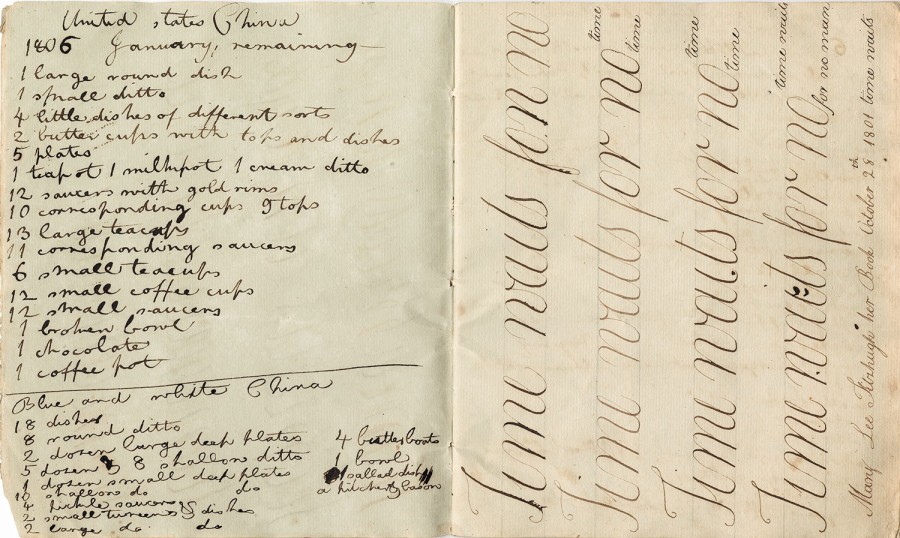 United states China
1806 January, remaining
1 large round dish
1 small ditto
4 little dishes of different sorts
2 butter cups with tops and dishes
5 plates
1 teapot 1 milkpot 1 cream ditto
12 saucers with gold rims
10 corresponding cups 9 tops
13 large teacups
11 corresponding saucers
6 small teacups
12 small coffee cups
12 small saucers
1 broken bowl
1 chocolate
1 coffee pot
Blue and white China
18 dishes
8 round ditto
2 dozen large deep plates
5 dozen & 8 shallon ditto
1 dozen small deep plates
10 shallon do do
4 pickle saucers
2 small tureens & dishes
2 large do do
4 butter boats
1 bowl
1 sallad dish
a pitcher & bason
Time waits for no
time
Time waits for no
time
time
Time waits for no
time
time waits
Time waits for no
for no man
Mary Lee Fitzhugh her Book October 28th 1801 time waits